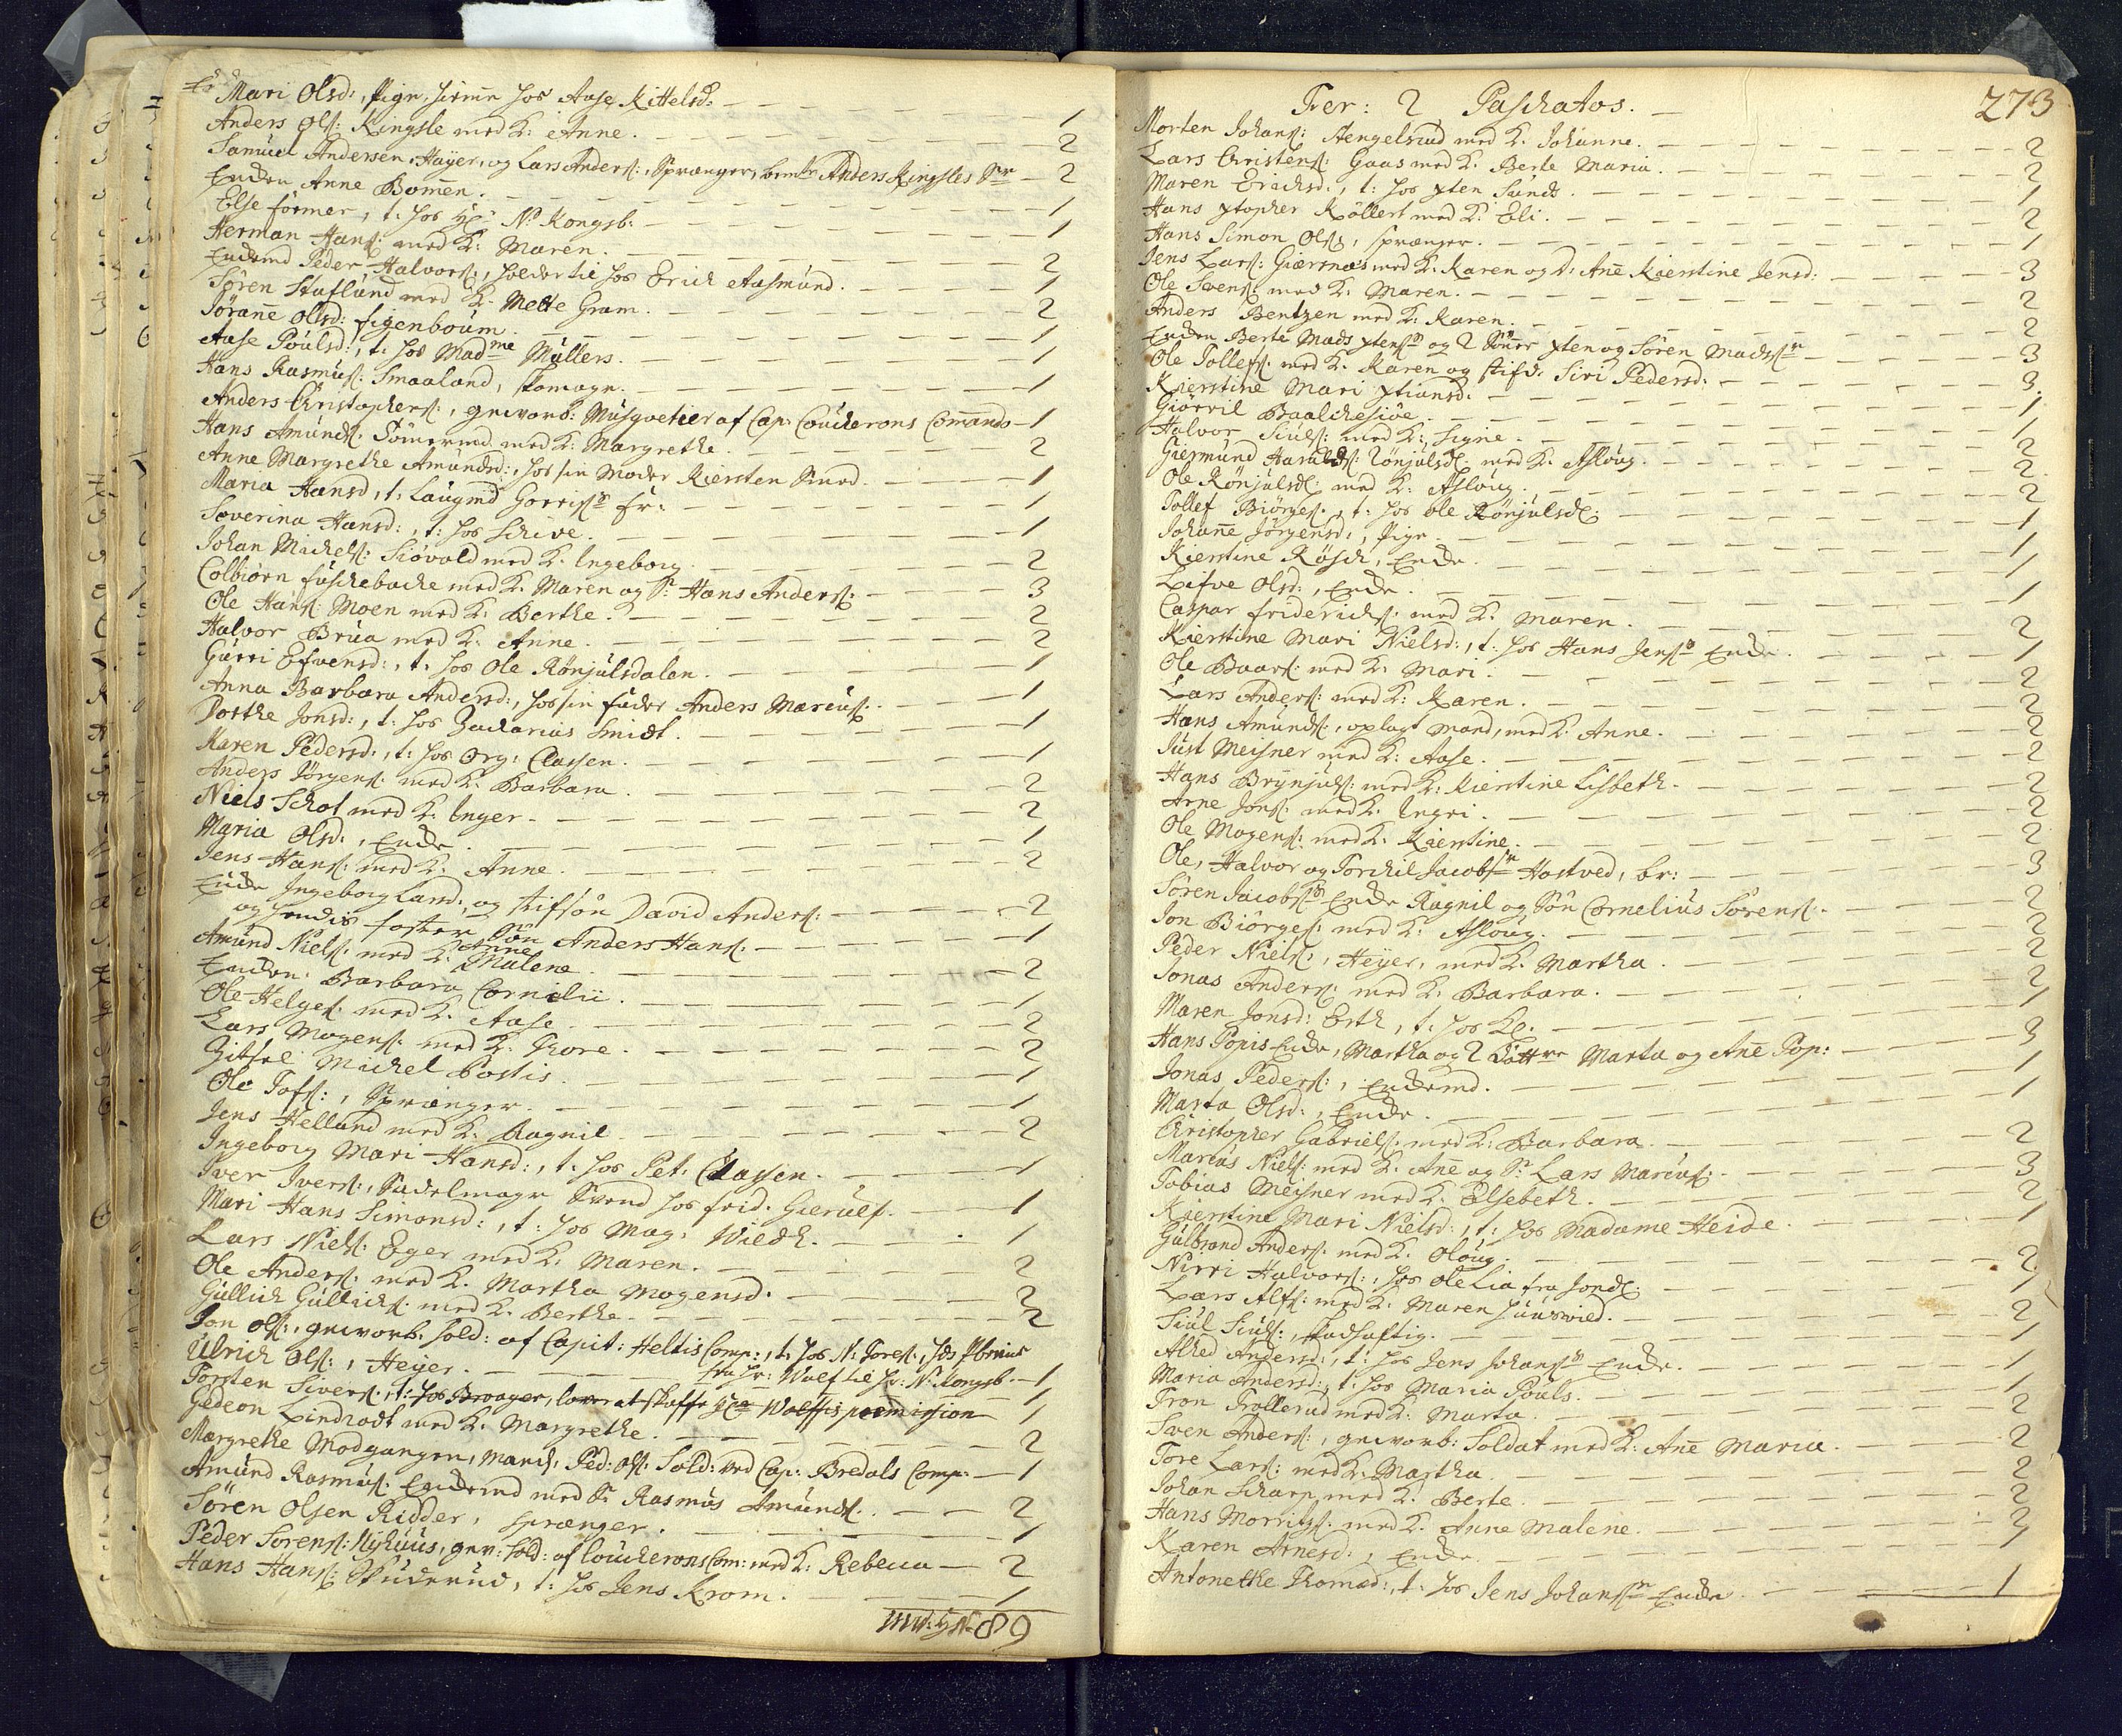 Mari Olsd:, Pige, hieme hos Aase Kittelsd: — 1
Anders Ols: Kingsle med K: Anne. — 2
Samuel Andersen, Hayer, og Lars Anders:, Sprænger, Anders Kingsles — 2
Enken Anne Bomen. — 1
Else former, t. hos Hr: N. Kongsb: — 1
Herman Hans: med K: Maren. — 2
Enkemd Peder Halvors:, holder til hos Erich Aasmund. — 1
Søren Stafland med K. Mette Gram. — 2
Jørane Olsd: figenboum. — 1
Aase Poulsd:, t. hos Madme Müllers. — 1
Hans Rasmus: Smaaland, skomager. — 1
Anders Christophers:, gevorb: Musqvetier af Cap: Coucherons Comando — 1
Hans Amunds. Tömermd med K: Margrethe. — 2
Anne Margrethe Amundsd:, hos sin Moder Kiersten — 1
Maria Hansd, t. Laugmd Gorriss: fr: — 1
Severina Hansd:, t: hos Schive. — 1
Johan Michels: Siövold med K. Ingeborg — 2
Colbiörn fuschebache med K. Maren og S: Hans Anders: — 3
Ole Hans: Moen med K: Berthe. — 2
Halvor Brua med K: Anne. — 2
Gurri Efvensd:, t. hos Ole Rönjulsdalen. — 1
Anna Barbara Andersd:, hos sin fader Anders Marcus: — 1
Dorthe Jonsd:, t: hos Zacharias Smidt. — 1
Karen Pedersd:, t: hos Org: Classen. — 1
Anders Jörgens: med K: Barbara. — 2
Niels Schot med K. Inger. — 2
Maria Olsd:, Enke. — 1
Jens Hans: med K: Anne. — 2
Enke Ingeborg Land:, og stifsön David Anders: — 2
og hendis foster Sön Anders Hans: — 1
Amund Niels: med K: Anne Malene. — 2
Enken Barbara Cornelii. — 1
Ole Helges: med K. Aase. — 2
Lars Mogens: med K: Thore. — 2
Gitsel Michel Postis. — 1
Ole Tofs:, Sprænger. — 1
Jens Helland med K: Ragnil. — 2
Ingeborg Mari Hansd:, t. hos Pet. Classen. — 1
Iver Ivers:, Sadelmager Svend hos frid. Gierulf. — 1
Mari Hans Simonsd:, t: hos Mag: Wildh. — 1
Lars Niels: Eger med K: Maren. — 2
Ole Anders: med K. Martha Mogensd. — 2
Gullich Gullichs: med K. Berthe. — 2
Jon Ols:, gevorb. Sold: af Capit: Heltis Comp:, t. hos N: Tores:,
fra Hr: Wulf til Hr: N. Kongsb. — 1
Ulrich Ols:, Heyer. — 1
Torsten Sivers:, t: hos Broager, lover at skaffe Hr Wolffis permission — 1
Gedeon Lindradt med K. Margrethe. — 2
Margrethe Modgangen, Mand: Ped: Ols: Sold: ved Cap: Bredals Comp. — 1
Amund Rasmus: Enkemd med S: Rasmus Amunds: — 2
Sören Olsen Ridder, sprænger. — 1
Peder Sörens: Nyhuus, gev: Sold: af Coucherons Com: med K: Rebecca — 2
Hans Hans: Skuderud, t: hos Jens Krom. — 1
89
Fer: 2 Paschatos.
273
Morten Johans: Hengelsrud med K. Johanne. — 2
Lars Christens: Gaas med K. Berte Maria. — 2
Maren Erichsd:, t: hos xten Sands. — 1
Hans xtopher Köllert med K: Eli. — 2
Hans Simon Ols:, sprænger. — 1
Jens Lars: Giersnæs med K: Karen og D: Ane Kierstine Jensd: — 3
Ole Svens: med K. Maren. — 2
Anders Bentzen med K. Karen. — 2
Enken Berte Mads xtens: og 2 Sönner xten og Sören Madss: — 3
Ole Tollefs: med K. Karen og stifd: Siri Pedersd: — 3
Kierstine Mari xtiansd: — 1
Giörril Baalchesiöe. — 1
Halvor Siuls: med K:, Signe. — 2
Giermund Haralds: Rönjulsd: med K. Asloug. — 2
Ole Rönjulsd: med K: Asloug. — 2
Tollef Biörges:, t: hos Ole Rönjulsd: — 1
Johane Jörgensd:, Pige — 1
Kierstine Rösch, Enke. — 1
Lifve Olsd:, Enke. — 1
Caspar friderichs: med K. Maren. — 2
Kierstine Mari Nielsd:, t: hos Hans Jens: Enke. — 1
Ole Baars: med K: Mari. — 2
Lars Anders: med K: Karen. — 2
Hans Amunds:, oplagt mand, med K. Anne. — 2
Just Meisner med K: Aase. — 2
Hans Brynjuls: med K: Kierstine Lisbeth. — 2
Arne Jons: med K: Ingri. — 2
Ole Mogens: med K: Kierstine. — 2
Ole, Halvor og Torchil Jacobs: Hostved, br: — 3
Sören Jacobs: Enke Ragnil og Sön Cornelius Sörens: — 2
Jon Biörges: med K: Asloug. — 2
Peder Niels:, Heyer, med K. Martha. — 2
Jonas Anders: med K: Barbara. — 2
Maren Jonsd: Esth, t: hos Kl: — 1
Hans Popis Enke, Martha og 2 Döttre Marta og Ane Pop: — 3
Jonas Peders:, Enkemd. — 1
Marta Olsd:, Enke. — 1
Christopher Gabriels: med K: Barbara. — 2
Marcus Niels: med K. Ane og S: Lars Marcus: — 3
Tobias Meisner med K. Elsebeth. — 2
Kierstine Mari Nielsd:, t: hos Madame Heide. — 1
Gulbrand Anders: med K. Oloug. — 2
Nirri Halvors:, hos Ole Lia fra Jondl: — 1
Lars Alfs: med K. Maren Juusvied. — 2
Siul Siuls:, Stadhaftig. — 1
Alhed Andersd:, t: hos Jens Johans: Enke. — 1
Maria Andersd:, t: hos Maria Pouls. — 1
Tron Trollerud med K: Marta. — 2
Sven Anders:, gevorb: Soldat med K: Ane Maria. — 2
Tore Lars: med K: Martha. — 2
Johan Scharp med K: Berte. — 2
Hans Morritzs: med K. Anne Malene. — 2
Karen Arnesd:, Enke. — 1
Antonethe Thomæd:, t: hos Jens Johans: Enke — 1